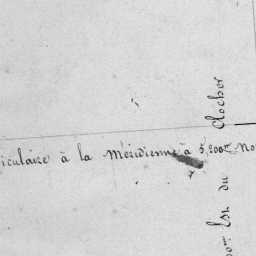 iculaire à la Méridienne à 5,200m No
00m Est du Clocher